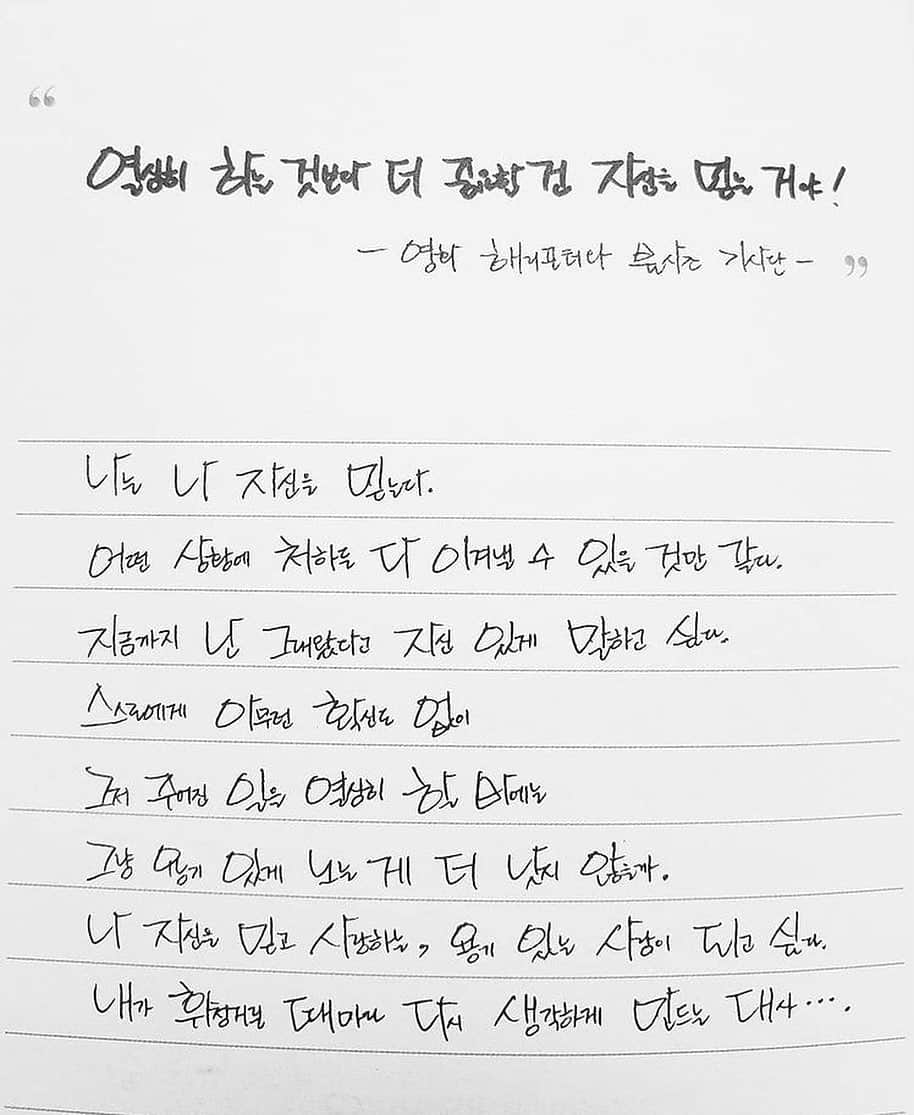 “
열심히 하는 것보다 더 중요한 건 자신을 믿는 거야!
- 영화 해리포터와 불사조 기사단 - ”
나는 나 자신을 믿는다.
어떤 상황에 처하든 다 이겨낼 수 있을 것만 같다.
지금까지 난 그래왔다고 자신 있게 말하고 싶다.
스스로에게 아무런 확신도 없이
그저 주어진 일을 열심히 할 바에는
그냥 용기 있게 노는 게 더 낫지 않을까.
나 자신을 믿고 사랑하는, 용기 있는 사람이 되고 싶다.
내가 휘청거릴 때마다 다시 생각하게 만드는 대사….